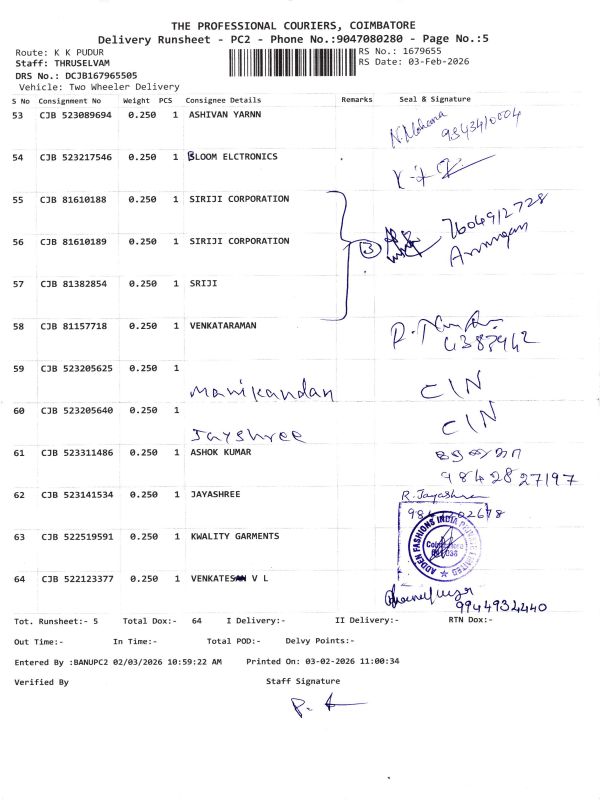 THE PROFESSIONAL COURIERS, COIMBATORE
Delivery Runsheet - PC2 - Phone No.:9047080280 - Page No.:5
Route: K K PUDUR RS No.: 1679655
Staff: THRUSELVAM RS Date: 03-Feb-2026
DRS No.: DCJB167965505
Vehicle: Two Wheeler Delivery
S No Consignment No Weight PCS Consignee Details Remarks Seal & Signature
53 CJB 523089694 0.250 1 ASHIVAN YARNN N. Mohana 9343410004
54 CJB 523217546 0.250 1 BLOOM ELCTRONICS
55 CJB 81610188 0.250 1 SIRIJI CORPORATION
56 CJB 81610189 0.250 1 SIRIJI CORPORATION 3 7604912728
Arumugam
57 CJB 81382854 0.250 1 SRIJI
58 CJB 81157718 0.250 1 VENKATARAMAN
59 CJB 523205625 0.250 1 Manikandan CIN
60 CJB 523205640 0.250 1 Jayshree CIN
61 CJB 523311486 0.250 1 ASHOK KUMAR
9842827197
62 CJB 523141534 0.250 1 JAYASHREE R. Jayashree
63 CJB 522519591 0.250 1 KWALITY GARMENTS ADDEN FASHIONS INDIA PRIVATE LIMITED
64 CJB 522123377 0.250 1 VENKATESAN V L
9944932440
Tot. Runsheet:- 5 Total Dox:- 64 I Delivery:- II Delivery:- RTN Dox:-
Out Time:- In Time:- Total POD:- Delvy Points:-
Entered By :BANUPC2 02/03/2026 10:59:22 AM Printed On: 03-02-2026 11:00:34
Verified By Staff Signature